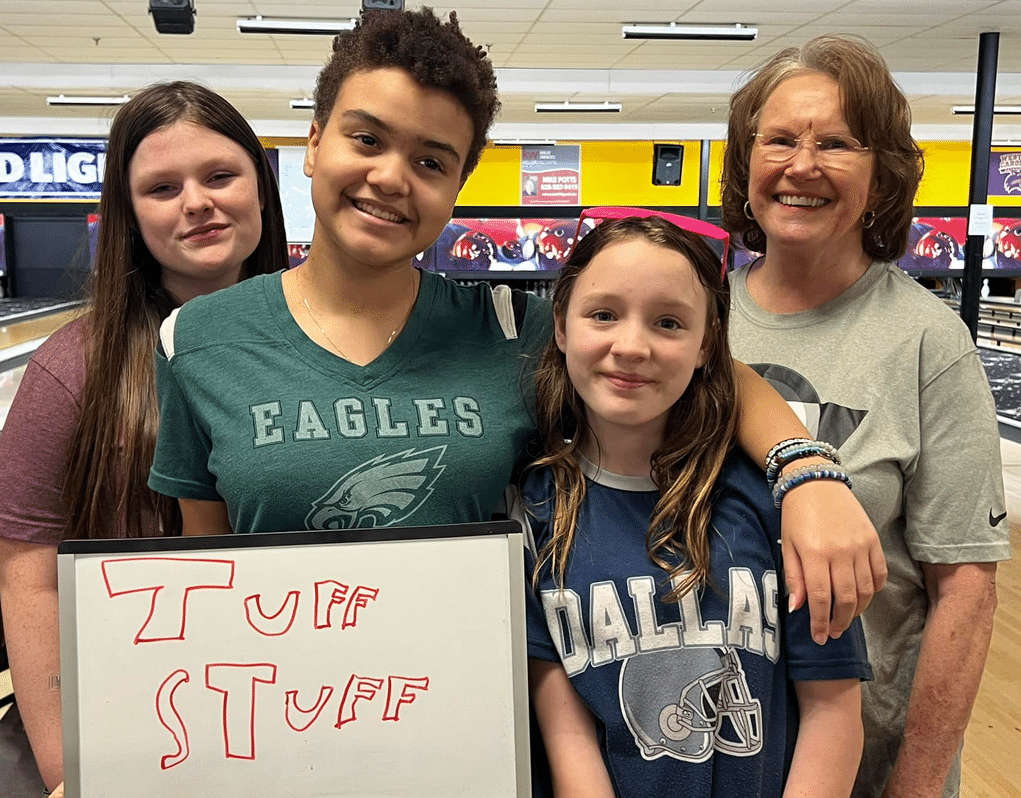 D LIGH
MIKE POTTS
EAGLES
DALLAS
TUFF
STUFF